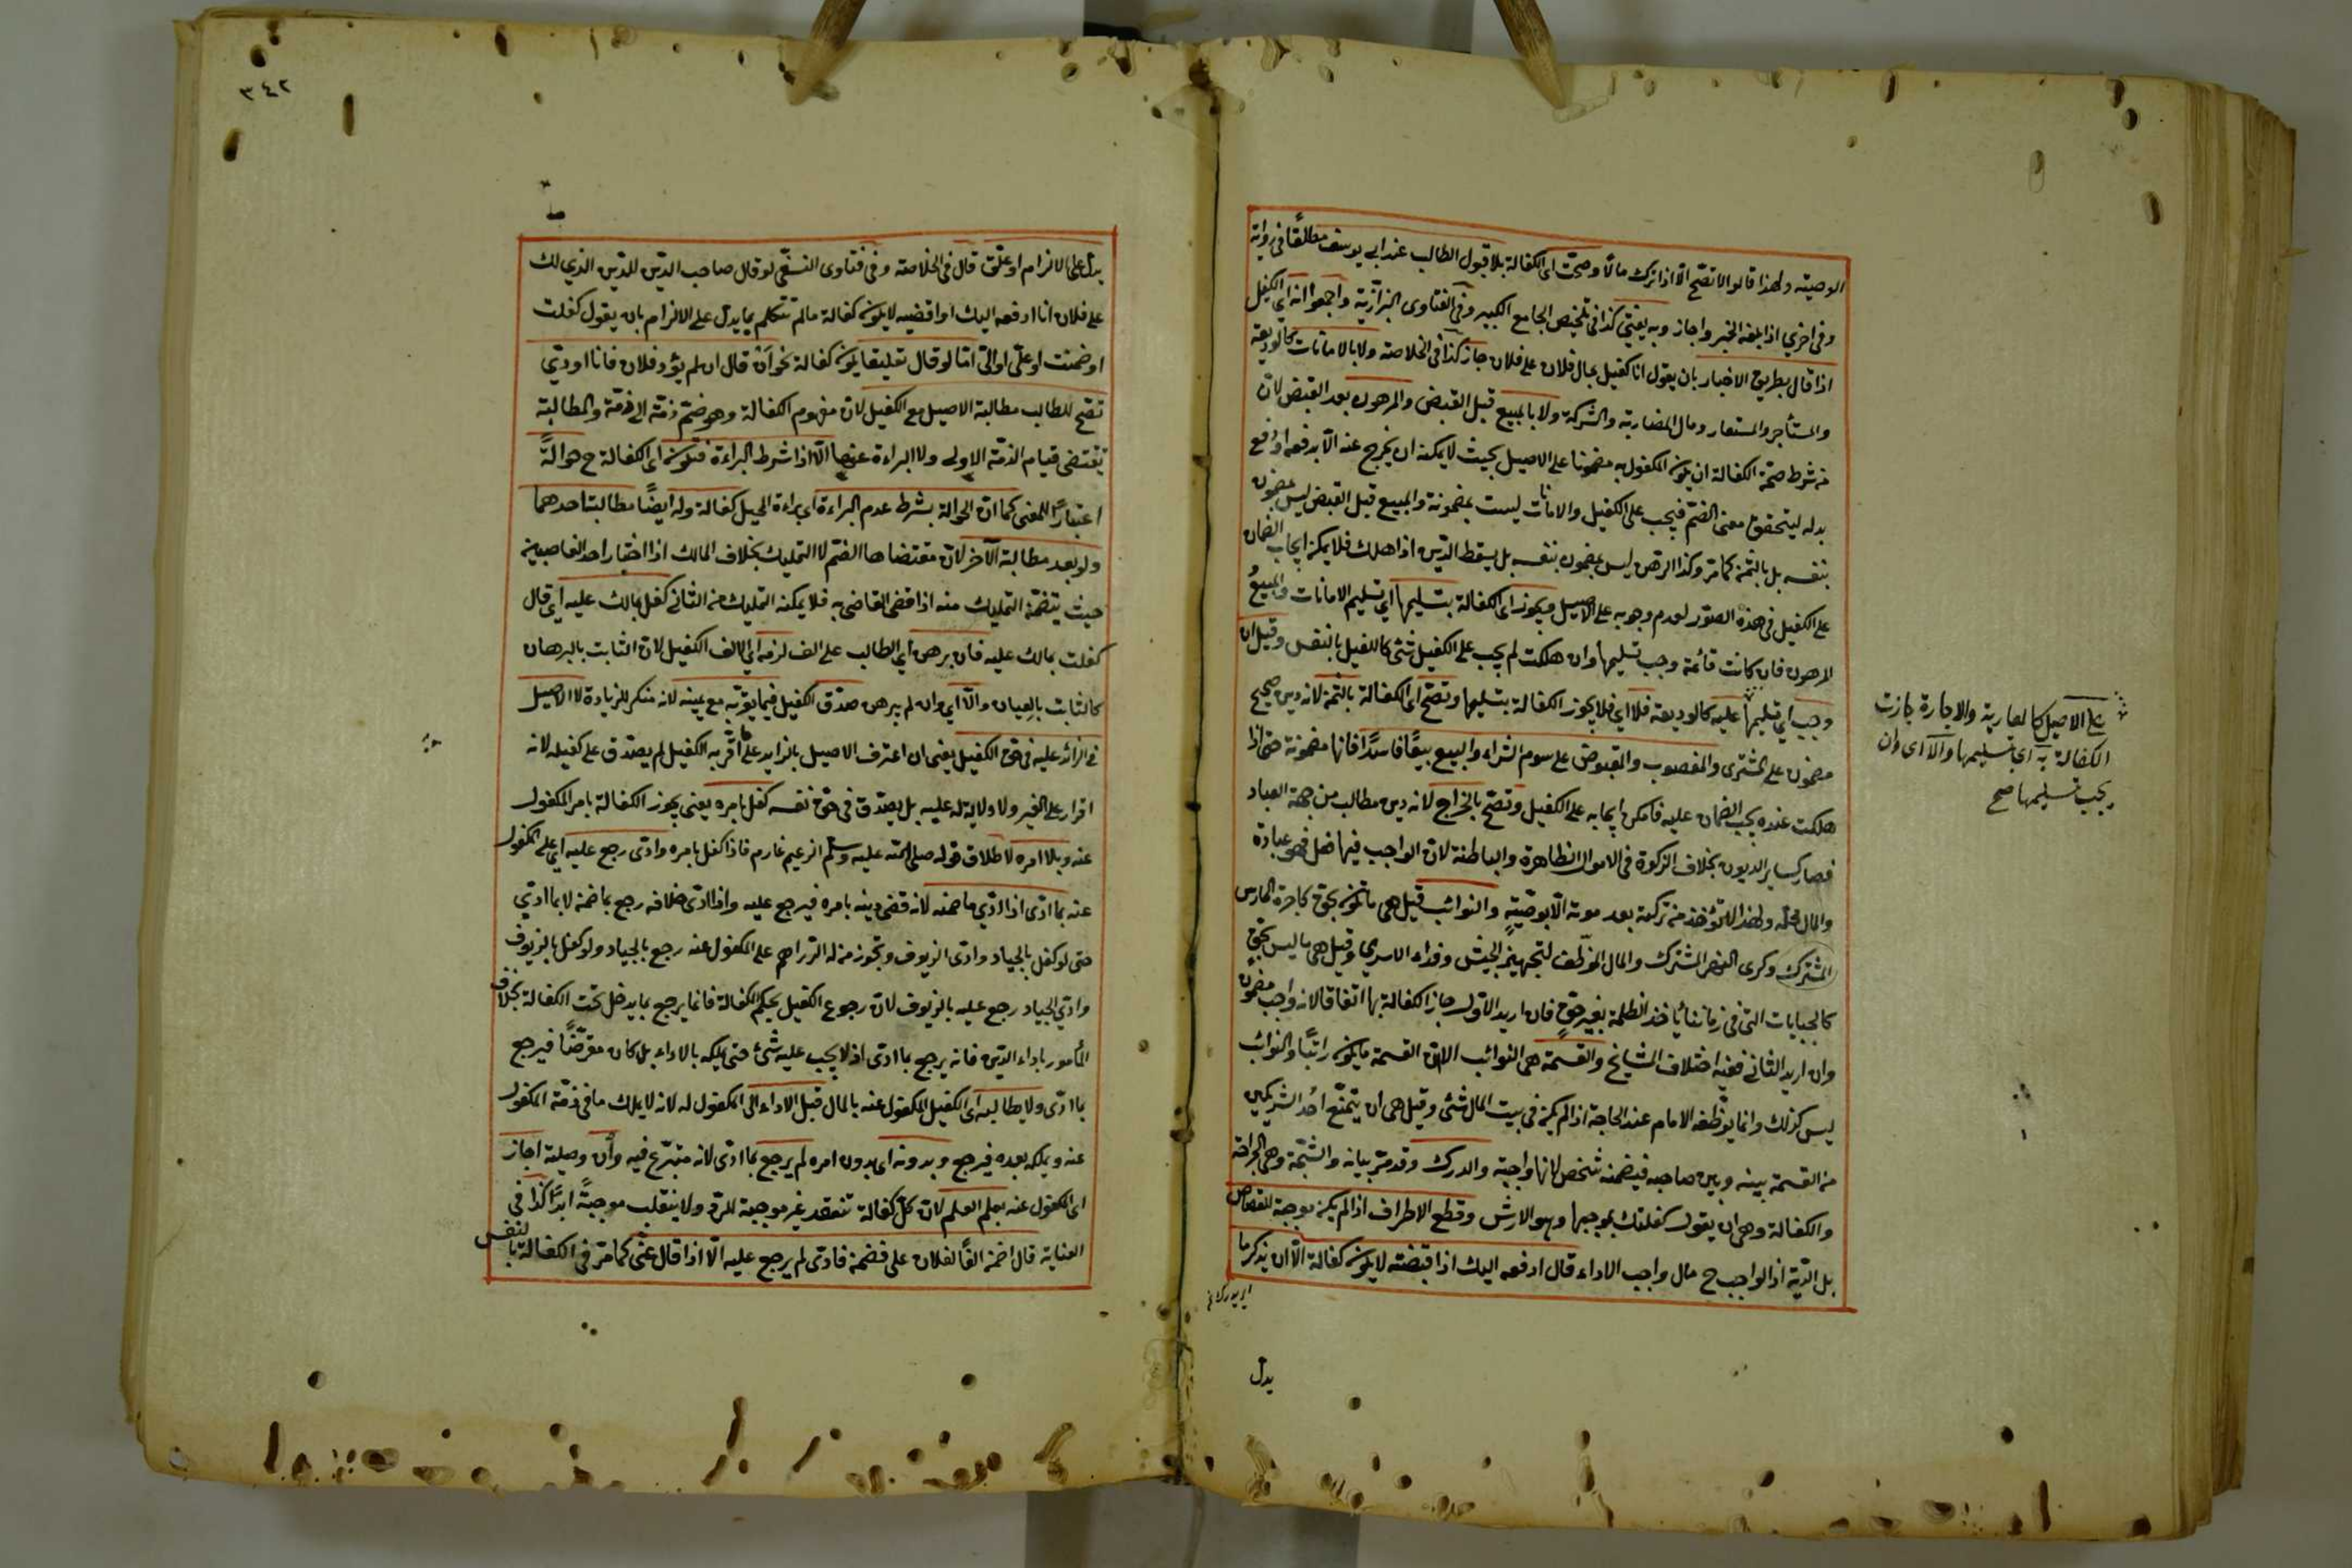 الوصية ولهذا قالوا لا تصح الا اذا ترك مالا وصحت اى الكفالة بلا قبول الطالب عند ابي يوسف مطلقا في رواية
وفى اخرى اذا بلغه الخبر واجاز وبه يفتى كذا في تلخيص الجامع الكبير وفى الفتاوى البزازية واجمعوا انه اي الكفيل
اذا قال بطريق الاخبار بان يقول انا كفيل بمال فلان على فلان جاز كذا فى الخلاصة ولا بالامانات كالوديعة
والمستأجر والمستعار ومال المضاربة والشركة ولا بالمبيع قبل القبض والمرهون بعد القبض لان
من شرط صحة الكفالة ان يكون المكفول به مضمونا على الاصيل بحيث لا يمكنه ان يخرج عنه الا بدفعه او دفع
بدله ليتحقق معنى الضم فيجب على الكفيل والامانات ليست بمضمونة والمبيع قبل القبض ليس بمضمون
بنفسه بل بالثمن كما مر وكذا الرهن ليس بمضمون بنفسه بل يسقط الدين اذا هلك فلا يمكن ايجاب الضمان
على الكفيل فى هذه الصور لعدم وجوبه على الاصيل ويجوز اى الكفالة بتسليمها اي تسليم الامانات والمبيع
المرهون فان كانت قائمة وجب تسليمها وان هلكت لم يجب على الكفيل شئ كالكفيل بالنفس وقيل ان
وجب اي تسليمها عليه كالوديعة فلا اي فلا يجوز الكفالة بتسليمها وتصح اى الكفالة بالثمن لانه دين صحيح
مضمون على المشترى والمغصوب والمقبوض على سوم الشراء والمبيع بيعا فاسدا فانها مضمونة حتى اذا
هلكت عنده يجب الضمان عليه فامكن ايجابه على الكفيل وتصح بالخراج لانه دين مطالب من جهة العباد
فصار كساير الديون بخلاف الزكوة فى الاموال الظاهرة والباطنة لان الواجب فيها فعل فهو عبادة
والمال محله ولهذا لا تؤخذ من تركته بعد موته الا بوصية والنوائب قيل هى ما تكون بحق كاجرة الحارس
المشترك وكرى النهر المشترك والمال الموظف لتجهيز الجيش وفداء الاسرى وقيل هى ما ليس بحق
كالجبايات التى فى زماننا يأخذ الظلمة بغير حق فان اريد الاول جاز الكفالة بها اتفاقا لانه واجب مضمون
وان اريد الثانى ففيه اختلاف المشايخ والقسمة هى النوائب الا ان القسمة ما يكون راتبا والنوائب
ليس كذلك وانما يوظفه الامام عند الحاجة اذا لم يكن فى بيت المال شئ وقيل هى ان يمتنع احد الشريكين
من القسمة بينه وبين صاحبه فيضمنه شخص لانها واجبة والدرك وقد مر بيانه والشجة وهى الجراحة
والكفالة وهى ان يقول كفلتك بموجبها وهو الارش وقطع الاطراف اذا لم يكن موجبة للقصاص
بل الدية اذ الواجب ح مال واجب الاداء قال ادفعه اليك اذا قبضته لا يكون كفالة الا ان يذكر ما
يدل
على الاصيل كالعارية والاجارة جازت
الكفالة به اى بتسليمها والا اى وان
يجب تسليمها صح
٣٤٢
يدل على الالتزام او علق قال فى الخلاصة وفى فتاوى النسفى لو قال صاحب الدين للدين الذي لك
على فلان انا ادفعه اليك او اقضيه لا يكون كفالة ما لم تتكلم بما يدل على الالتزام بان يقول كفلت
او ضمنت او علي او الي اما لو قال تعليقا يكون كفالة نحو ان قال ان لم يؤد فلان فانا اودي
تصح للطالب مطالبة الاصيل مع الكفيل لان مفهوم الكفالة وهو ضم ذمة الى ذمة والمطالبة
تقتضى قيام الذمة الاولى ولا البراءة عنها الا اذا شرط البراءة فتكون اى الكفالة ح حوالة
اعتبارا للمعنى كما ان الحوالة بشرط عدم البراءة اى براءة المحيل كفالة وله ايضا مطالبة احدهما
ولو بعد مطالبة الآخر لان مقتضاها الضم لا التمليك بخلاف المالك اذا اختار احد الغاصبين
حيث يتضمن التمليك منه اذا قضى القاضى به فلا يمكنه التمليك من الثانى كفل بمالك عليه اي قال
كفلت بمالك عليه فان برهن اي الطالب على الف لزمه اي الالف الكفيل لان الثابت بالبرهان
كالثابت بالعيان والا اي وان لم يبرهن صدق الكفيل فيما يقر به مع يمينه لانه منكر للزيادة لا الاصيل
فى الزائد عليه فى حق الكفيل يعنى ان اعترف الاصيل بالزايد على ما اقر به الكفيل لم يصدق على كفيله لانه
اقرار على الغير ولا ولاية له عليه بل يصدق فى حق نفسه كفل بامره يعنى يجوز الكفالة بامر المكفول
عنه وبلا امره لاطلاق قوله صلى الله عليه وسلم الزعيم غارم فاذا كفل بامره وادى رجع عليه اي على المكفول
عنه بما ادى اذا ادى ما ضمنه لانه قضى دينه بامره فيرجع عليه واذا ادى خلافه رجع بما ضمن لا بما ادى
حتى لو كفل بالجياد وادى الزيوف وتجوز من له الدراهم على المكفول عنه رجع بالجياد ولو كفل بالزيوف
وادى الجياد رجع عليه بالزيوف لان رجوع الكفيل بحكم الكفالة فانما يرجع بما يدخل تحت الكفالة بخلاف
المأمور باداء الدين فانه يرجع بما ادى اذ لا يجب عليه شئ حتى يملكه بالاداء بل كان مقرضا فيرجع
بما ادى ولا يطالبه اى الكفيل المكفول عنه بالمال قبل الاداء الى المكفول له لانه لا يملك ما فى ذمة المكفول
عنه ويملكه بعده فيرجع وبدونه اى بدون امره لم يرجع بما ادى لانه متبرع فيه وأن وصلية اجاز
اى المكفول عنه بعلم العلم لان كل كفالة تنعقد غير موجبة للرد ولا ينقلب موجبة ابدا كذا فى
العناية قال اضمن الفا لفلان على فضمن فادى لم يرجع عليه الا اذا قال عنى كما مر فى الكفالة بالنفس